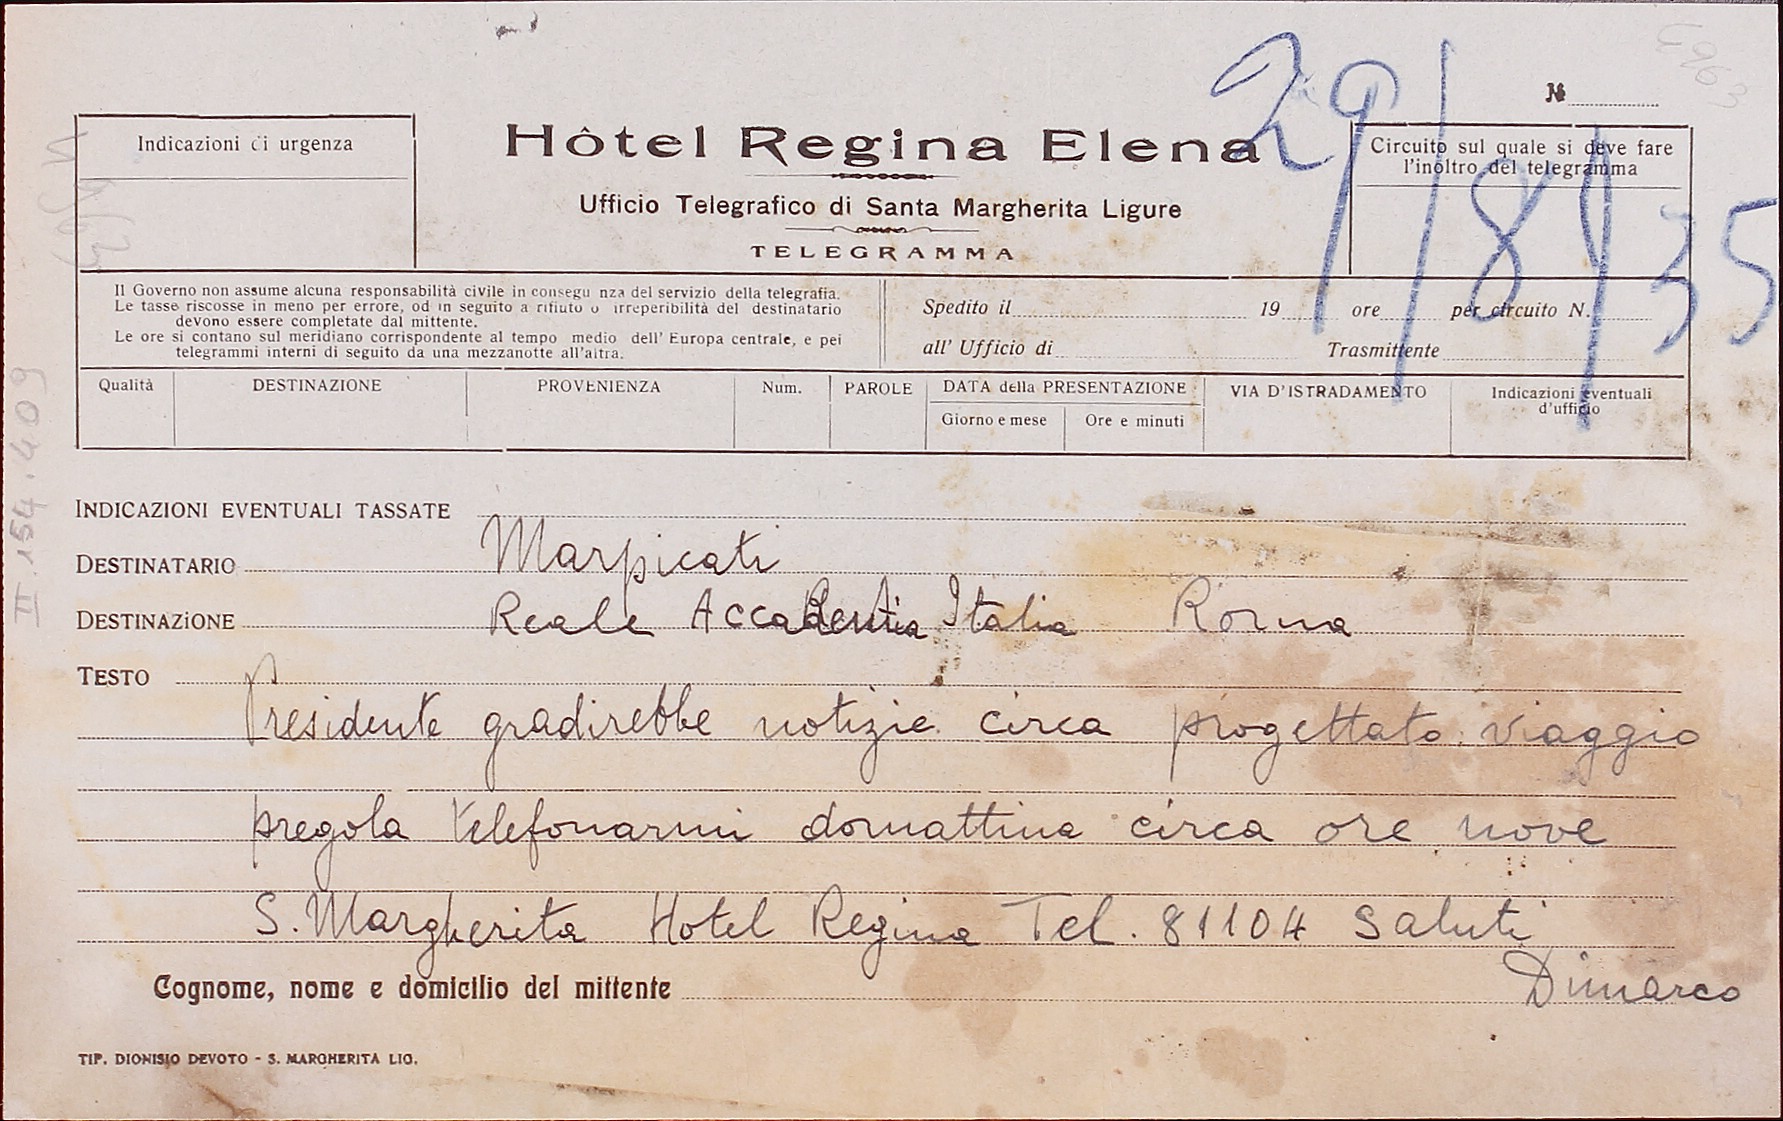 4963
29/8/35
№
Indicazioni di urgenza
Hôtel Regina Elena
Ufficio Telegrafico di Santa Margherita Ligure
TELEGRAMMA
Circuito sul quale si deve fare
l'inoltro del telegramma
Il Governo non assume alcuna responsabilità civile in consegu nza del servizio della telegrafia.
Le tasse riscosse in meno per errore, od in seguito a rifiuto o irreperibilità del destinatario
devono essere completate dal mittente.
Le ore si contano sul meridiano corrispondente al tempo medio dell' Europa centrale, e pei
telegrammi interni di seguito da una mezzanotte all'altra.
Spedito il 19 ore per circuito N.
all' Ufficio di Trasmittente
Qualità DESTINAZIONE PROVENIENZA Num. PAROLE DATA della PRESENTAZIONE VIA D'ISTRADAMENTO Indicazioni eventuali
d'ufficio
Giorno e mese Ore e minuti
INDICAZIONI EVENTUALI TASSATE
DESTINATARIO Marpicati
DESTINAZIONE Reale Accademia Italia Roma
TESTO
Presidente gradirebbe notizie circa progettato viaggio
pregola telefonarmi domattina circa ore nove
S. Margherita Hotel Regina Tel. 81104 Saluti
Dimarco
Cognome, nome e domicilio del mittente
TIP. DIONISIO DEVOTO - S. MARGHERITA LIG.
II.154.409